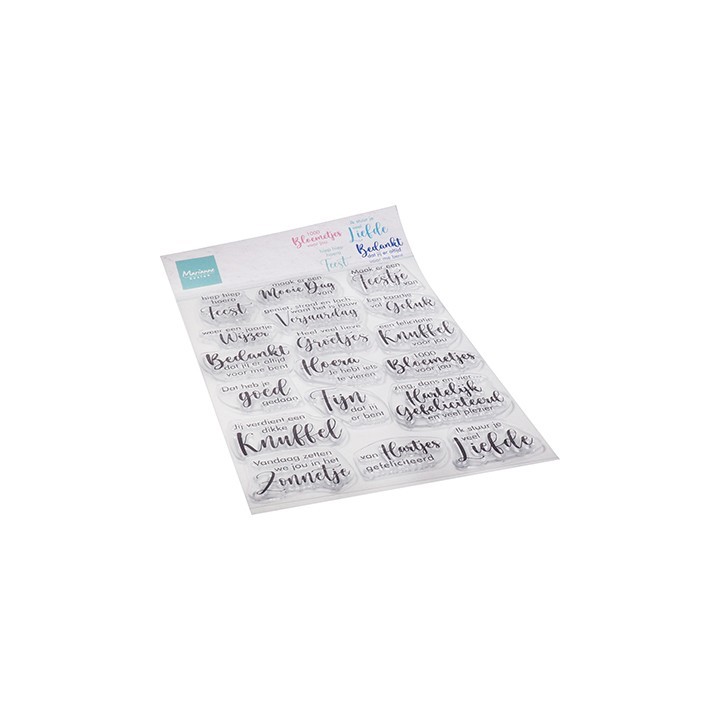 Marianne
DESIGN
1000
Bloemetjes
voor jou
Ik stuur je
veel
Liefde
hiep hiep
hoera
Feest
Bedankt
dat jij er altijd
voor me bent
hiep hiep
hoera
Feest
Maak er een
Mooie Dag
van
Maak er een
Feestje
van
weer een jaartje
Wijzer
geniet, straal en lach
want het is jouw
Verjaardag
Een kaartje
vol
Geluk
Bedankt
dat jij er altijd
voor me bent
Heel veel lieve
Groetjes
een felicitatie
Knuffel
voor jou
Hoera
Je hebt iets
te vieren
1000
Bloemetjes
voor jou
Dat heb je
goed
gedaan
Fijn
dat jij
er bent
zing, dans en vier
Hartelijk
Gefeliciteerd
en veel plezier
Jij verdient een
dikke
Knuffel
Vandaag zetten
we jou in het
Zonnetje
van
Hartjes
gefeliciteerd
Ik stuur je
veel
Liefde